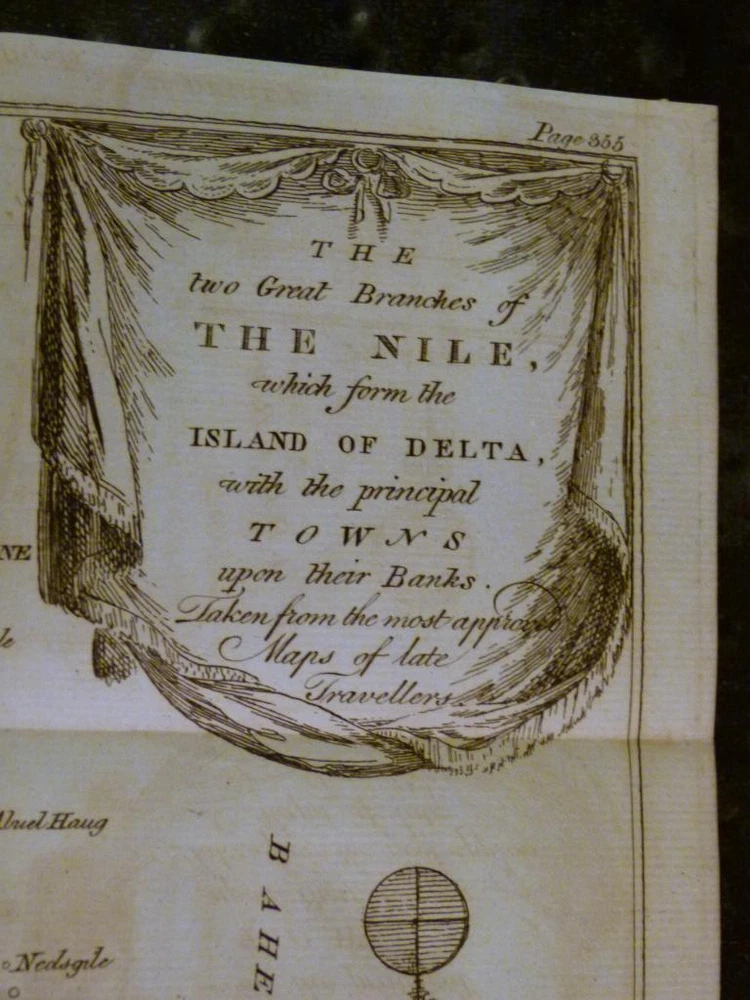 Page 355
THE
two Great Branches of
THE NILE,
which form the
ISLAND OF DELTA,
with the principal
TOWNS
upon their Banks.
Taken from the most approved
Maps of late
Travellers.
NE
le
Abuel Haug
BAHE
Nedsgile